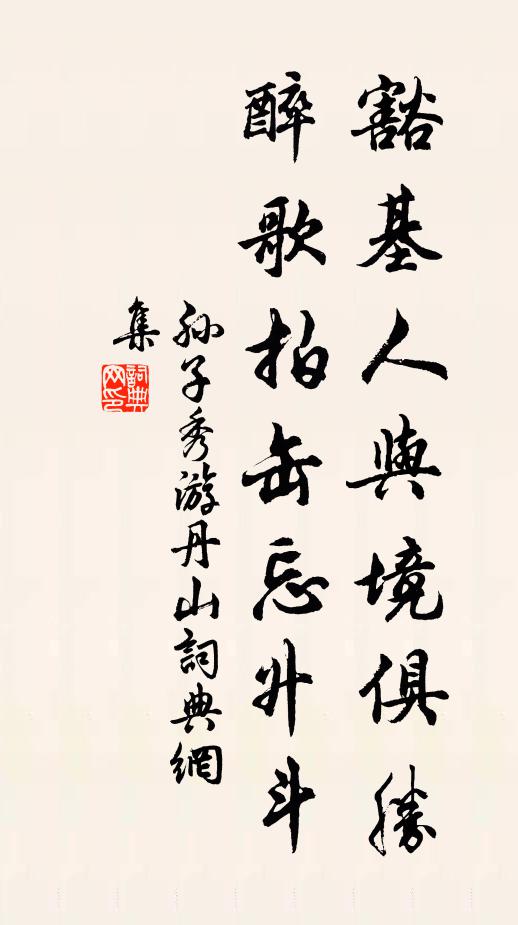 豁基人與境俱勝
醉歌拍缶忘升斗
孙子秀游丹山詞典網
集
詞典網印